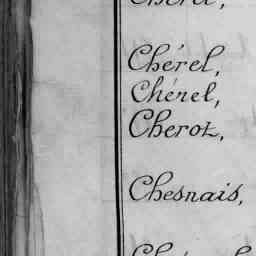 Chérel,
Chérel,
Cherot,
Chesnais,